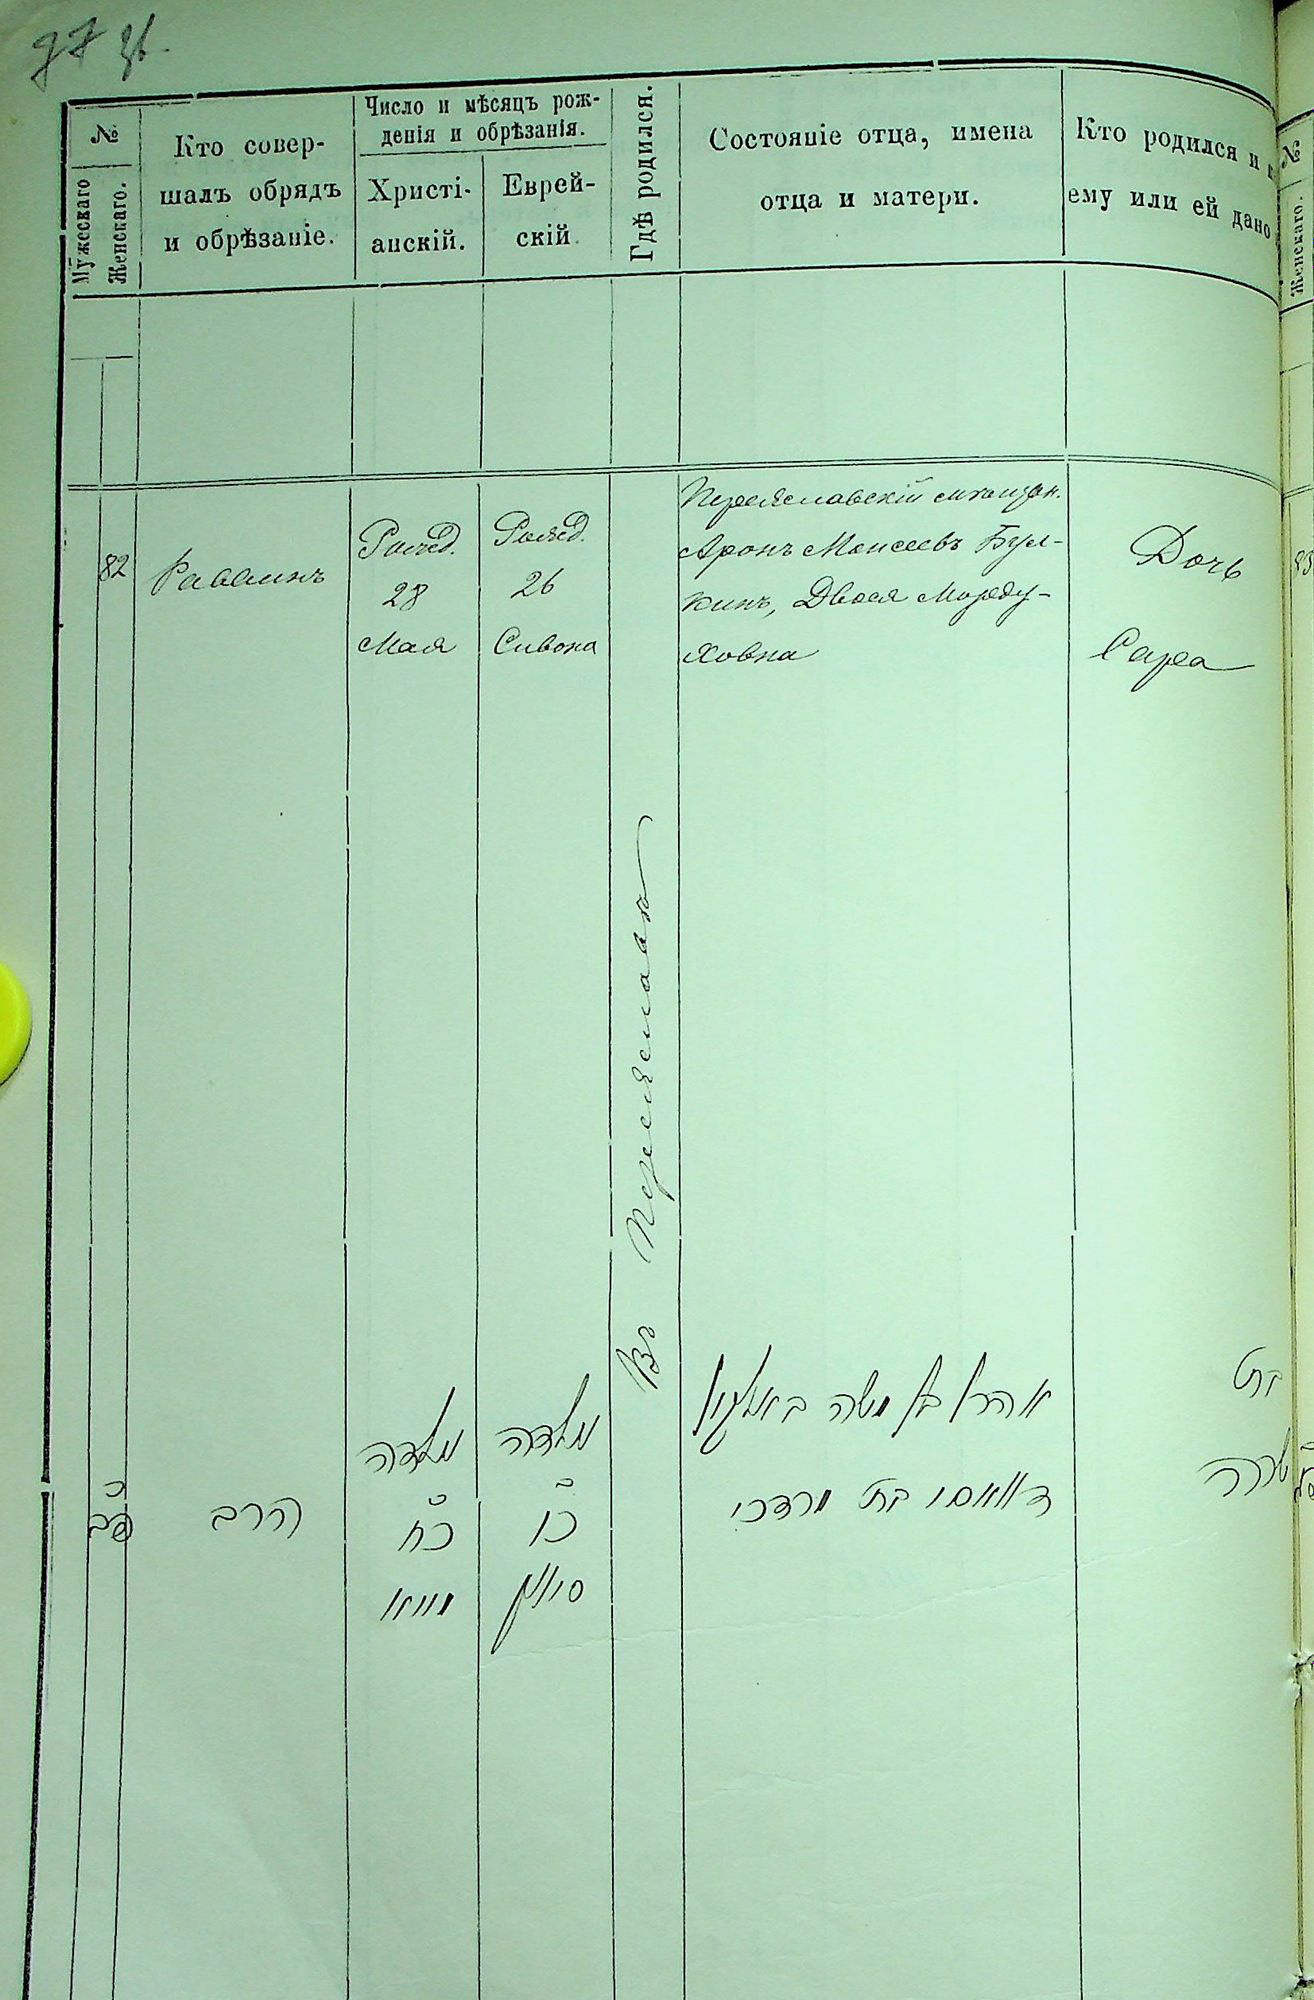 №
Мужескаго
Женскаго.
Кто совер-
шалъ обрядъ
и обрѣзаніе.
Число и мѣсяцъ рож-
денія и обрѣзанія.
Христі-
анскій.
Еврей-
скій
Гдѣ родился.
Состояніе отца, имена
отца и матери.
Кто родился и
ему или ей дано
№
Женскаго.
82
Раввинъ
Рожд.
28
Мая
Рожд.
26
Сивона
Въ Переяславѣ
Переяславскій мѣщан.
Аронъ Моисеевъ Бул-
кинъ, Двося Морду-
ховна
Дочь
Сара
פב
הרב
נולדה
כח
מאי
נולדה
כו
סיון
אהרן בן משה
דוואסי בת מרדכי
בת
שרה